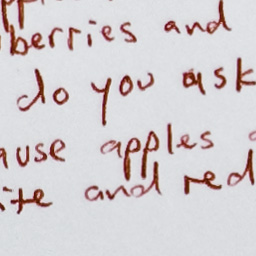 berries and
do you ask
ause apples
ite and red